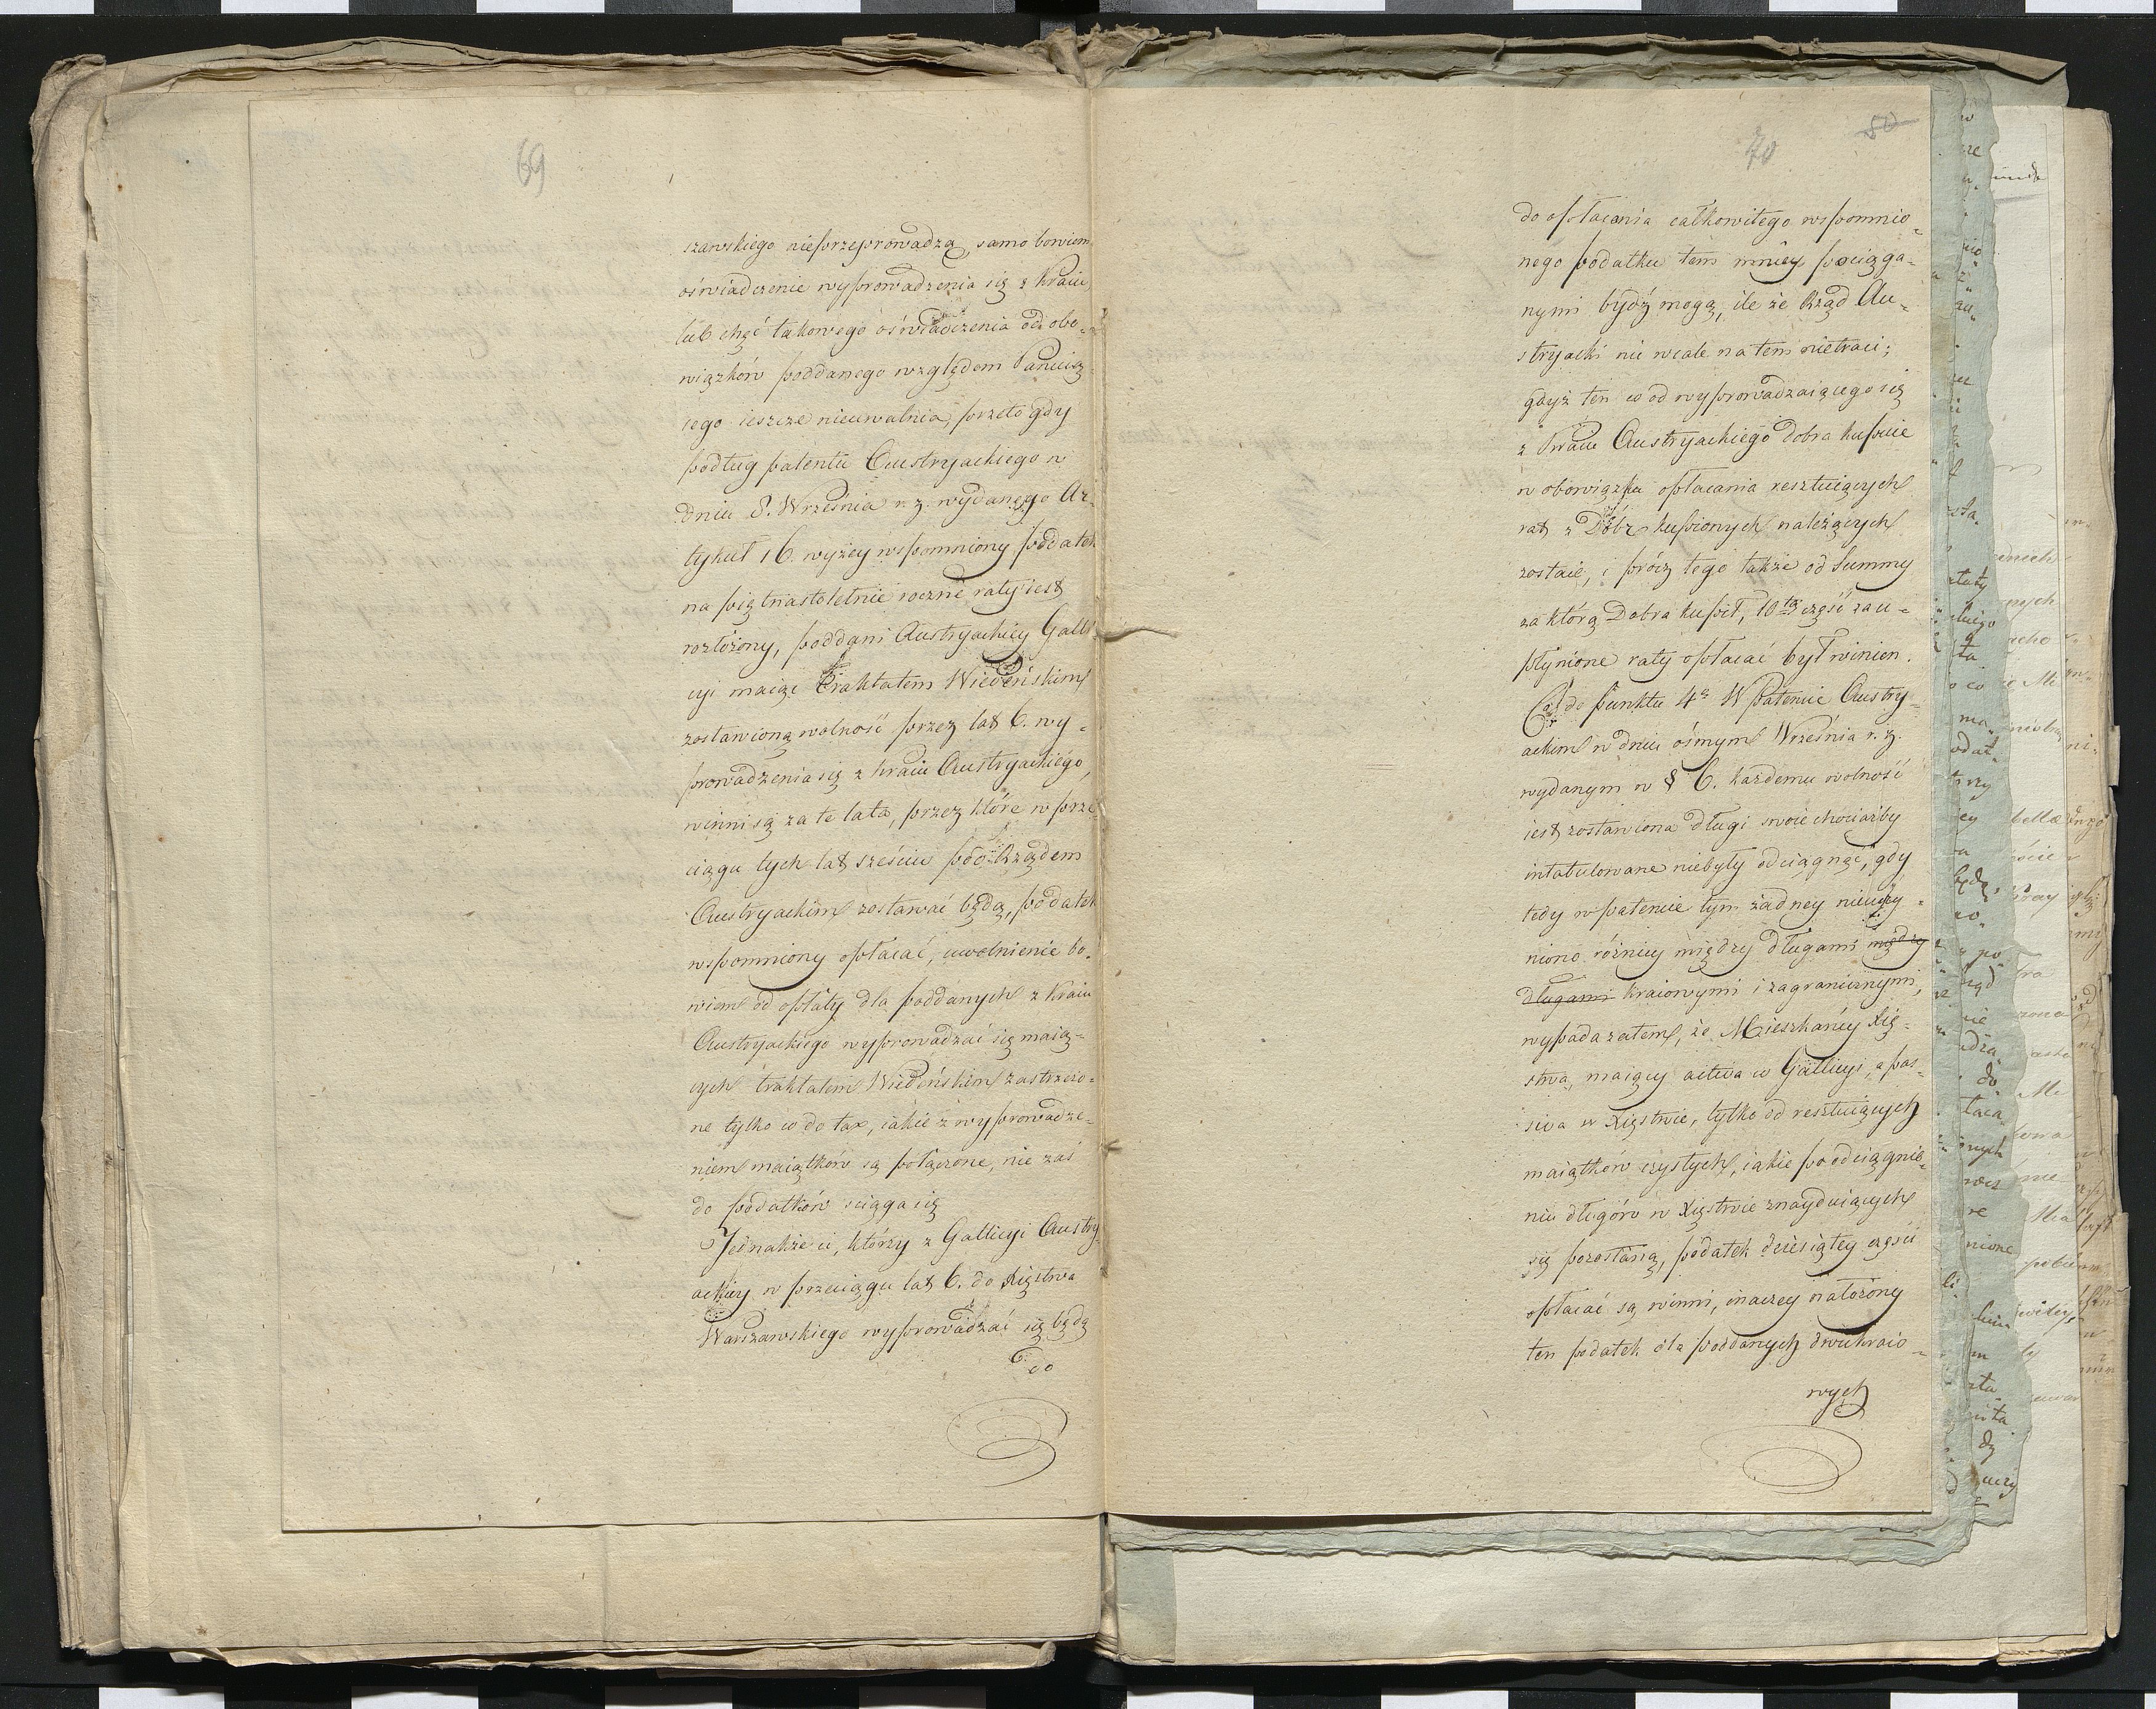 69
szawskiego nieprzeprowadzą, samo bowiem
oświadczenie wyprowadzenia się z kraiu
lub chęć takowego oświadczenia od obo-
wiązków poddanego względem Panuią-
cego ieszcze nieuwalnia, przeto gdy
podług patentu Austryackiego w
dniu 8. Września r. z. wydanego Ar-
tykuł 16. wyżey wspomniony podatek
na piętnastoletnie roczne raty iest
rozłożony, poddani Austryackiey Galli-
cyi maiąc Traktatem Wiedeńskim
zostawioną wolność przez lat 6. wy-
prowadzenia się z kraiu Austryackiego,
winni są za te lata, przez które w prze
ciągu tych lat sześciu pod Rządem
Austryackim zostawać będą, podatek
wspomniony opłacać, uwolnienie bo-
wiem od opłaty dla poddanych z Kraiu
Austryackiego wyprowadzać się maią-
cych traktatem Wiedeńskim zastrzeżo-
ne tylko co do tax, iakie z wyprowadze-
niem maiątków są połączone, nie zaś
do podatków sciąga się
Jednakże ci, którzy z Gallicyi Austry-
ackiey w przeciągu lat 6. do Xięstwa
Warszawskiego wyprowadzać się będą
do
50
70
do opłacania całkowitego wspomnio-
nego podatku tem mniey pociąga-
nymi bydź mogą, ile że Rząd Au-
stryacki nic wcale na tem nietraci;
gdyż ten co od wyprowadzaiącego się
z kraiu Austryackiego dobra kupuie
w obowiązku opłacania resztuiących
rat z Dóbr kupionych należących
zostaie, i prócz tego także od Summy
za którą Dobra kupił, 10tą część zau-
płynione raty opłacać był winien.
Co do punktu 4o W patencie Austry-
ackim w dniu ósmym Września r. z.
wydanym w § 6. każdemu wolność
iest zostawiona długi swoie chociażby
intabulowane niebyły odciągnąć, gdy
tedy w patencie tym żadney nieuczy-
niono różnicy między długami między
długami kraiowymi i zagranicznymi,
wypada zatem, że Mieszkańcy Xię-
stwa, maiący activa w Gallicyi, a pas-
siva w Xięstwie, tylko od resztuiących
maiątków czystych, iakie po odciągnie-
niu długów w Xięstwie znayduiących
się pozostaną, podatek dziesiątey części
opłacać są winni, inaczey nałożony
ten podatek dla poddanych dwukraio-
wych